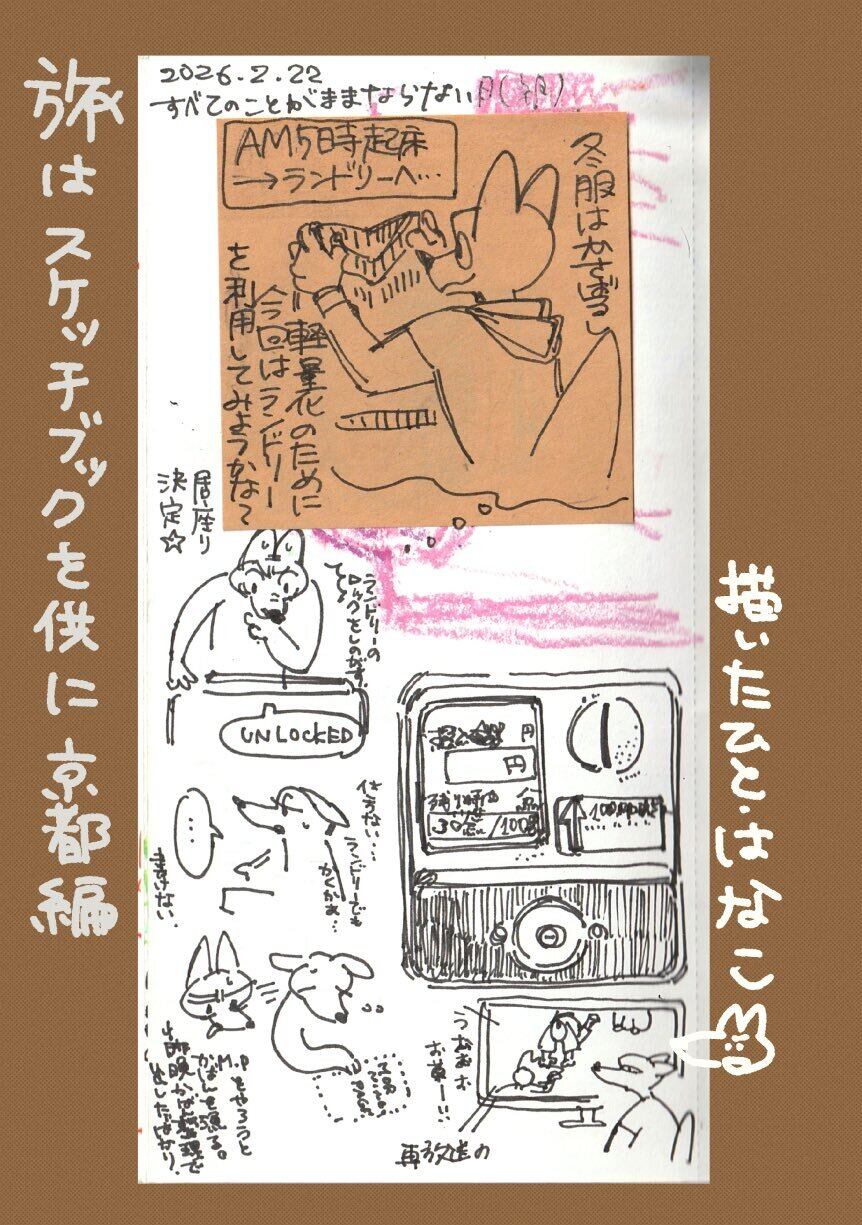 旅はスケッチブックを供に 京都編
2026.2.22
すべてのことがままならない月(朝)
AM5時起床
→ランドリーへ…
冬服はかさばるし
軽量化のために
今回はランドリー
を利用してみようかなて
居座り
決定☆
ランドリーの
ロックをしのがす
UNLOCKED
円
円
残り時間
30 /100
100
使うない…
ランドリーでも
かくかぁ…
…
まけない
M.Pをやろうと
かばんを漁る。
昨晩かばん整理で
出したばかり
再放送の
描いたひと・はなこ